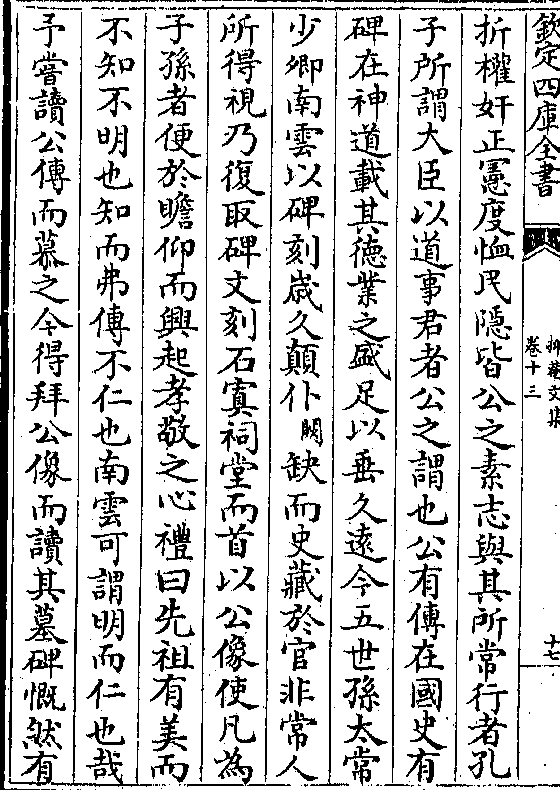 欽定四庫全書
抑菴文集
卷十三
十七
折權奸正憲度恤民隱皆公之素志與其所常行者孔
子所謂大臣以道事君者公之謂也公有傳在國史有
碑在神道載其德業之盛足以垂久遠今五世孫太常
少卿南雲以碑刻歲久顛仆闕缺而史藏於官非常人
所得視乃復取碑文刻石寘祠堂而首以公像使凡為
子孫者便於瞻仰而興起孝敬之心禮曰先祖有美而
不知不明也知而弗傳不仁也南雲可謂明而仁也哉
予嘗讀公傳而慕之今得拜公像而讀其墓碑慨然有